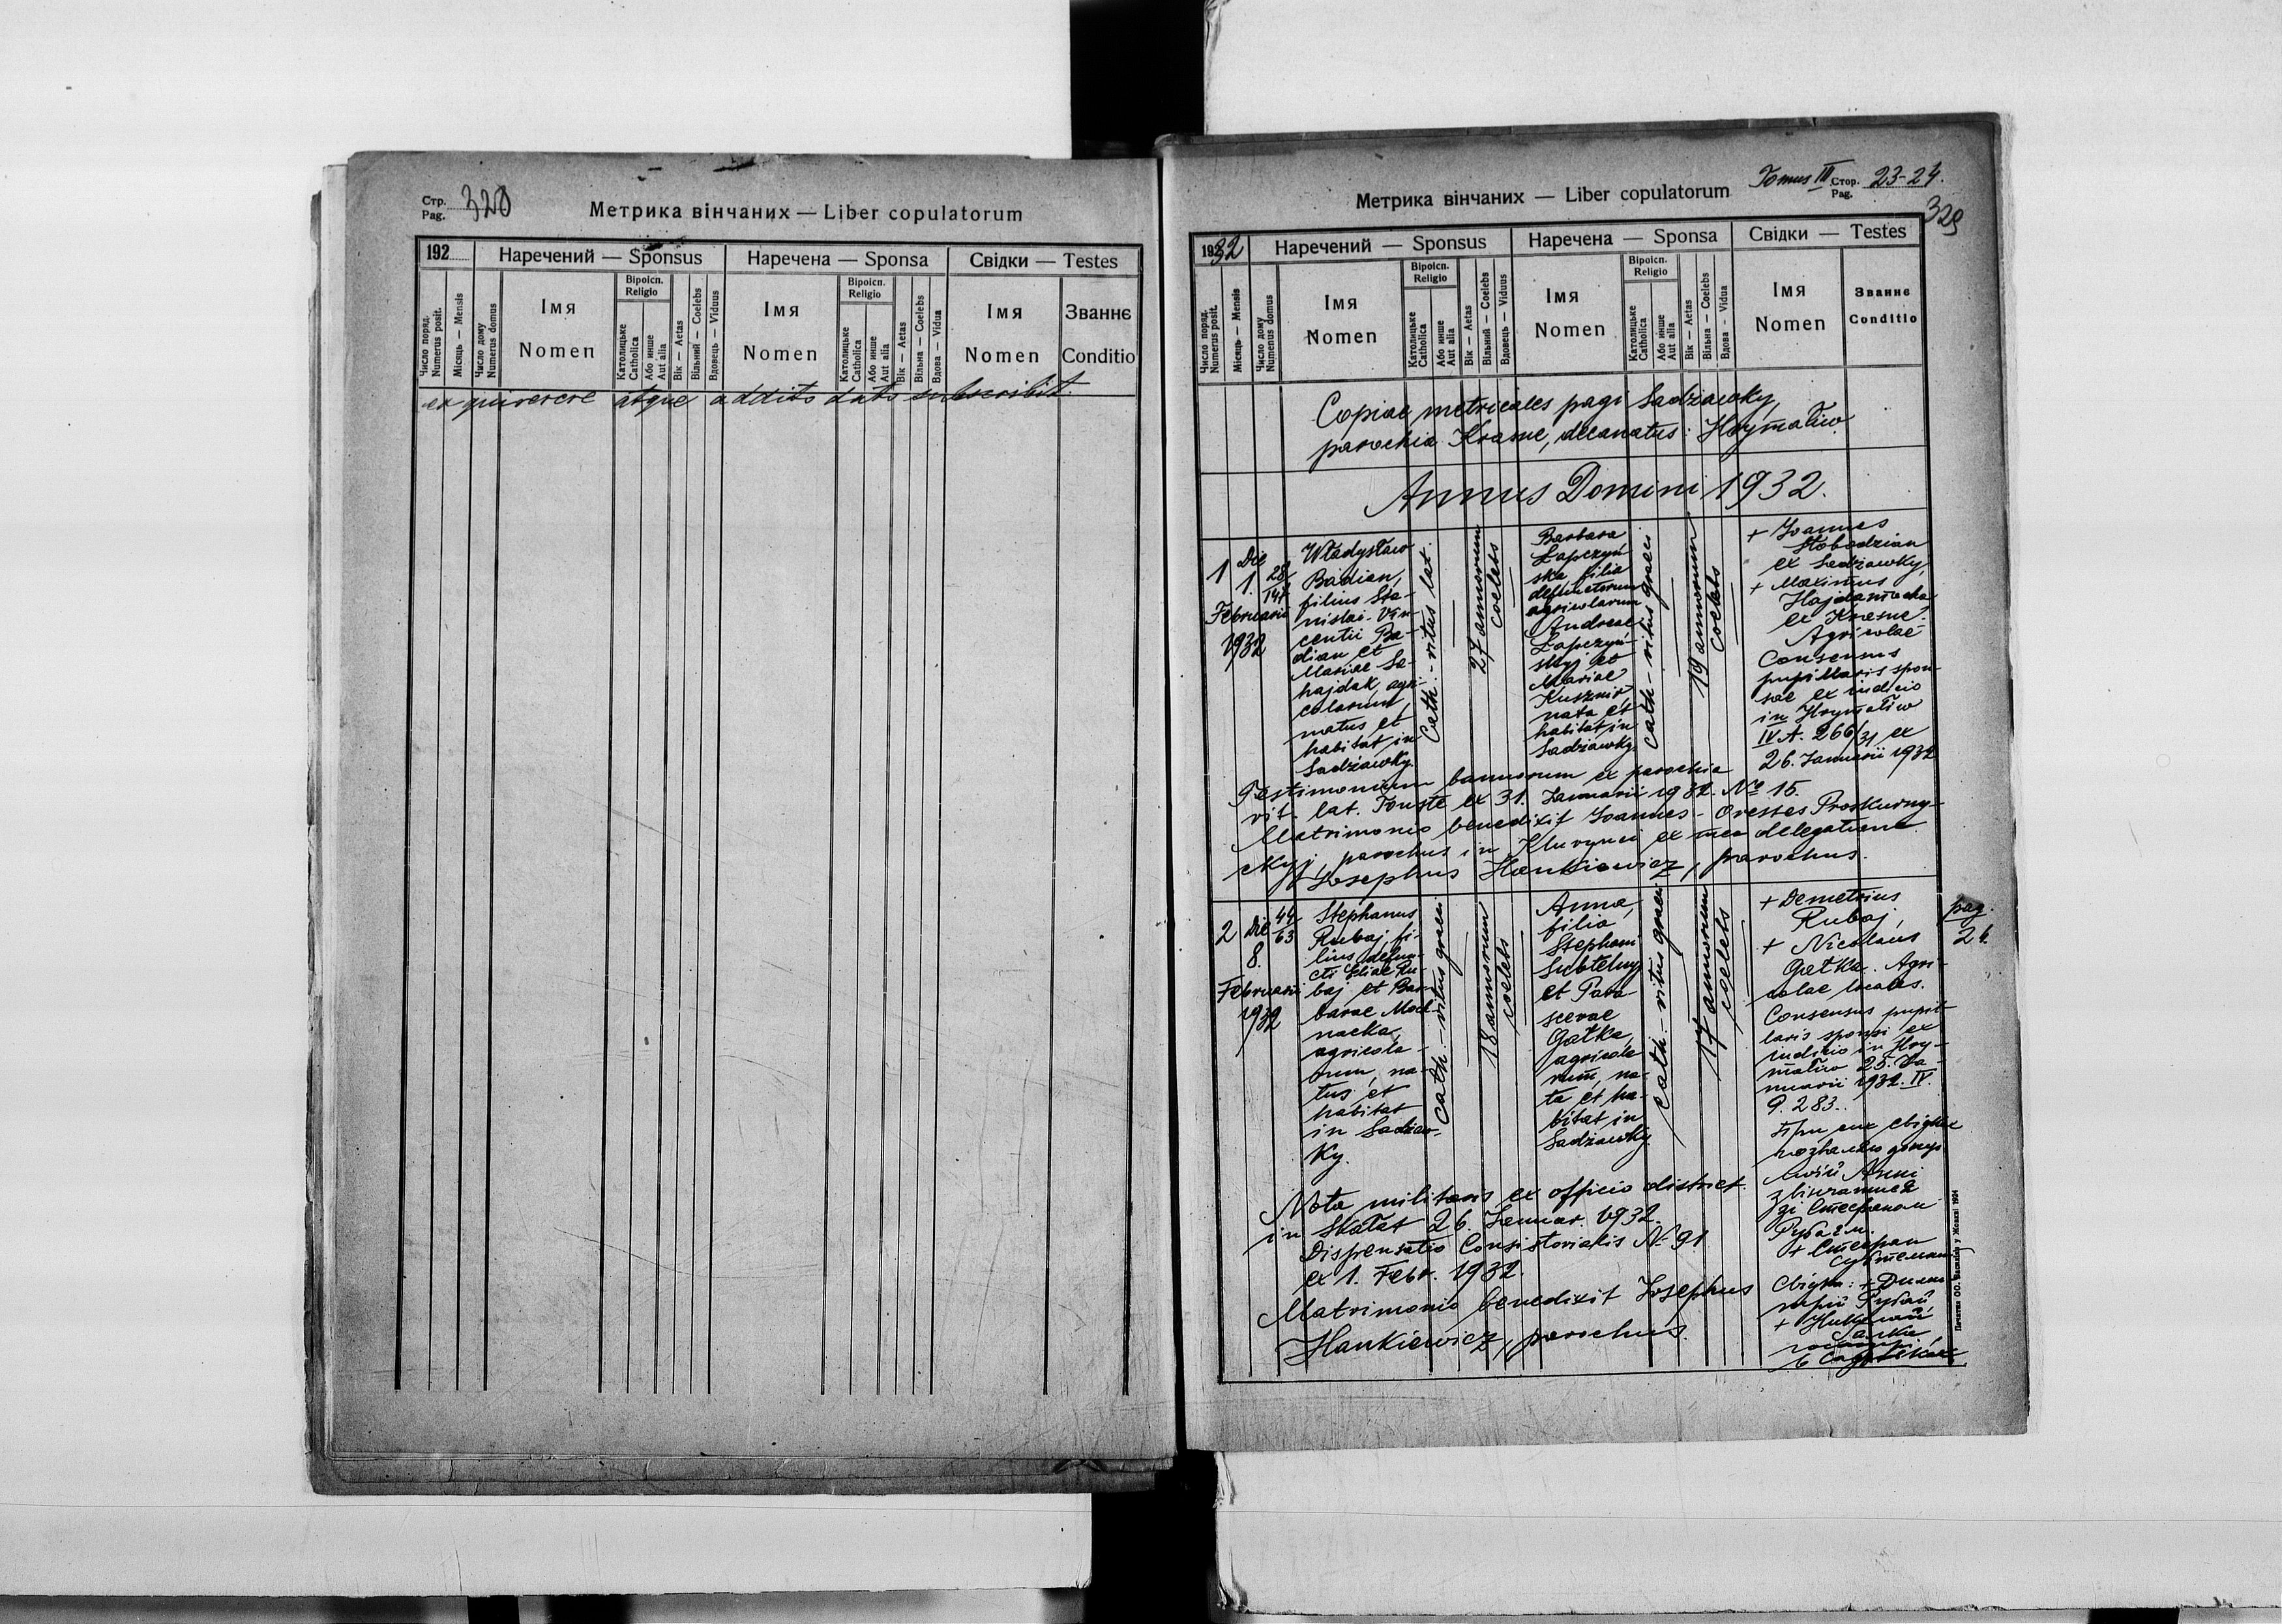 Стр.
Pag. 320
Метрика вінчаних — Liber copulatorum
192
Наречений — Sponsus
Наречена — Sponsa
Свідки — Testes
Число поряд.
Numerus posit.
Місяць — Mensis
Число дому
Numerus domus
Імя
Nomen
Віроісп.
Religio
Католицьке
Catholica
Або инше
Aut alia
Вік — Aetas
Вільний — Coelebs
Вдовець — Viduus
Імя
Nomen
Віроісп.
Religio
Католицьке
Catholica
Або инше
Aut alia
Вік — Aetas
Вільна — Coelebs
Вдова — Vidua
Імя
Nomen
Званнє
Conditio
atque addito dato subscribit.
Tomus III Стор.
Pag. 23-24.
329
Метрика вінчаних — Liber copulatorum
1932
Наречений — Sponsus
Наречена — Sponsa
Свідки — Testes
Число поряд.
Numerus posit.
Місяць — Mensis
Число дому
Numerus domus
Імя
Nomen
Віроісп.
Religio
Католицьке
Catholica
Або инше
Aut alia
Вік — Aetas
Вільний — Coelebs
Вдовець — Viduus
Імя
Nomen
Віроісп.
Religio
Католицьке
Catholica
Або инше
Aut alia
Вік — Aetas
Вільна — Coelebs
Вдова — Vidua
Імя
Nomen
Званнє
Conditio
Copiae metricales pagi Sadzawky,
parochia Krasne, decanatus: Hrymaliw.
Annus Domini 1932.
1
Die
1.
Februarii
1932
28
141
Władysław
Badian,
filius Sta-
nislai-Vin-
centii Ba-
dian et
Mariae Sa-
hajdak, agri-
colarum,
natus et
habitat in
Sadzawky.
Cath.-ritus lat.
27 annorum
coelebs
Barbara
Łapczyń-
ska filia
defunctorum
agricolarum
Andreae
Łapczyń-
skyj et
Mariae
Kusznir
nata et
habitat in
Sadzawky.
cath-ritus graeci
19 annorum
coelebs
+ Joannes
Słobodzian
ex Sadzawky,
+ Maximus
ex Krasne.
Agricolae
Consensus
pupillaris spon-
sae ex iudicio
in Hrymaliw
IV A. 266/31 ex
26. Januarii 1932
Testimonium bannorum ex parochia
rit. lat. Touste ex 31. Januarii 1932. No 15.
Matrimonio benedixit Joannes-Orestes Proskurny-
ckyj, parochus in Kluvynci ex mea delegatione.
Josephus Hankiewicz, parochus.
2
Die
8.
Februarii
1932
44
63
Stephanus
Rubaj, fi-
lius defun-
cti Eliae Ru-
baj et Bar-
barae Moch-
nacka,
agricola-
rum, na-
tus et
habitat
in Sadzaw-
ky.
cath.-ritus graeci
18 annorum
coelebs
Anna,
filia
Stephani
Subtelny
et Para-
scevae
Gałka,
agricola-
rum, na-
ta et ha-
bitat in
Sadzawky.
cath.-ritus graeci
17 annorum
coelebs
+ Demetrius
Rubaj,
+ Nicolaus
Gałka. Agri-
colae locales.
Consensus pupil-
laris sponsi ex
iudicio in Hry-
maliw 25. Ja-
nuarii 1932. IV.
283.
pag.
24.
При сих свідках
позваляю доньці
моїй Анні
вінчатися
зі Стефаном
Рубаєм.
+ Стефан
Субтельний
Свідки: + Дими-
трій Рубай,
+ Николай
Галка
Nota militaris ex officio district.
in Skałat 26. Januar. 1932.
Dispensatio Consistorialis No 91
ex 1. Febr. 1932.
Matrimonio benedixit Josephus
Hankiewicz, parochus.
Печатня ОО. Василіян у Жовкві 1924